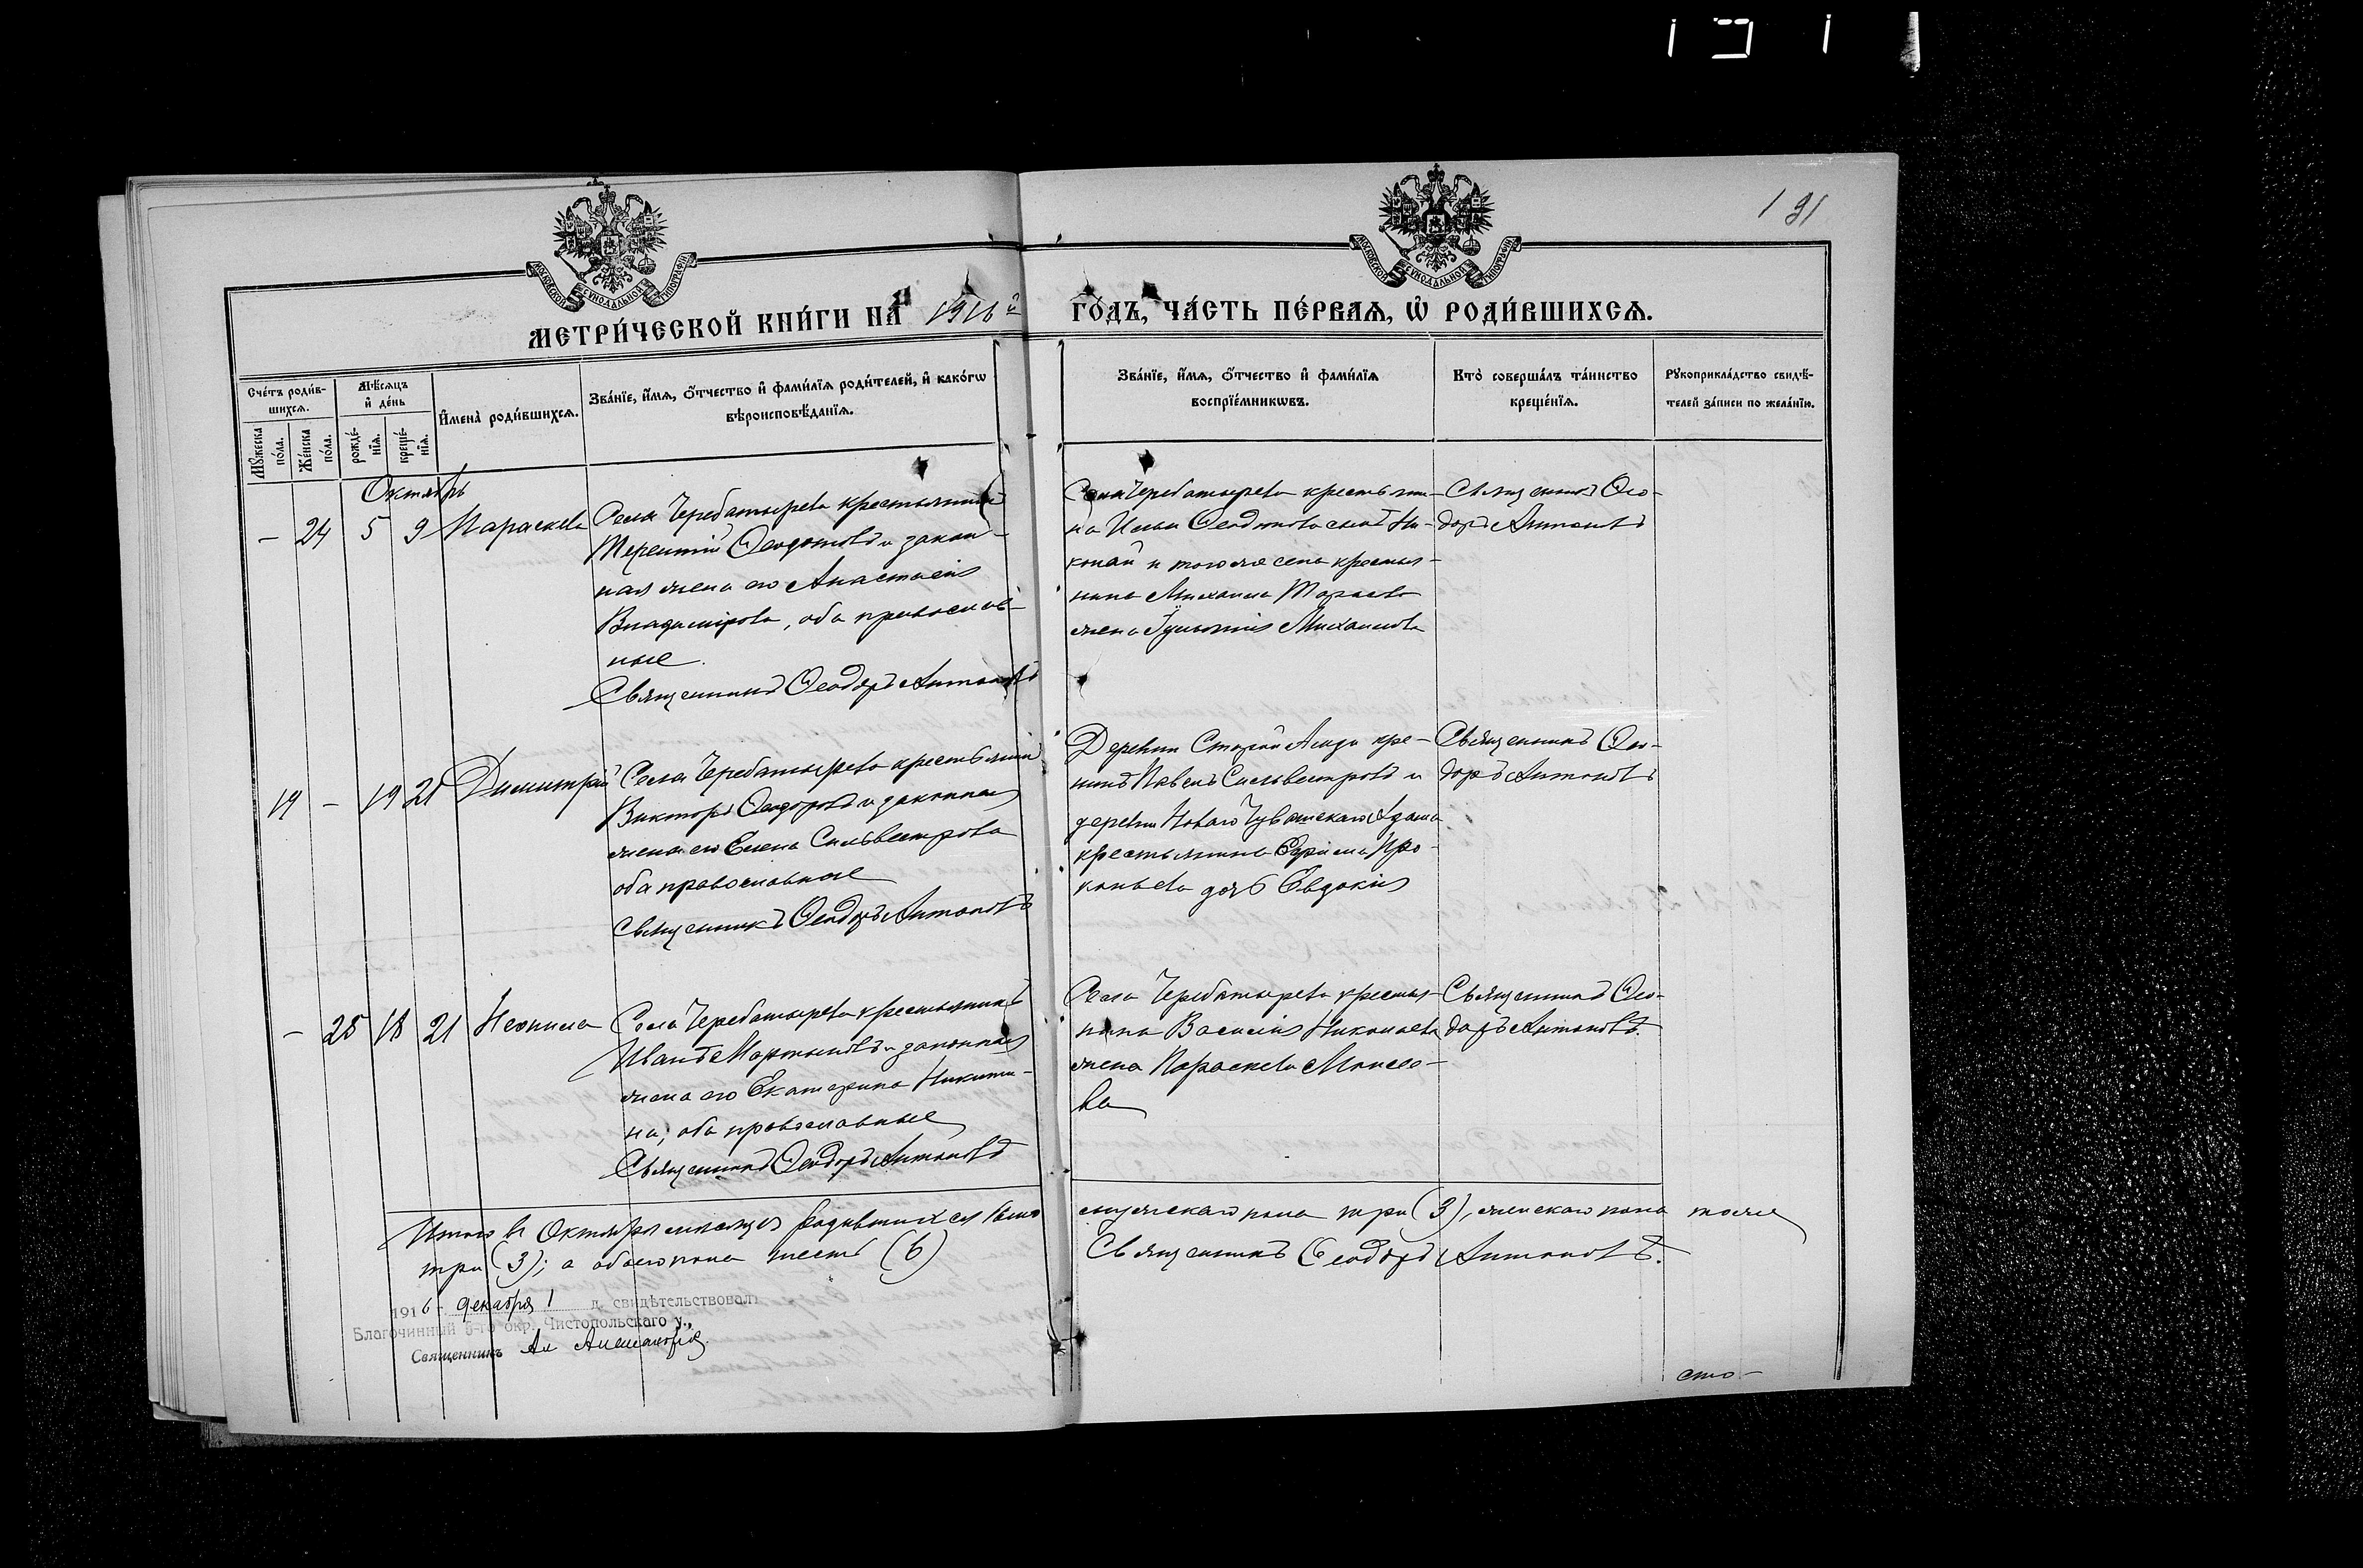 191
МОСКОВСКОЙ СѴНОДАЛЬНОЙ ТИПОГРАФІИ
МОСКОВСКОЙ СѴНОДАЛЬНОЙ ТИПОГРАФІИ
МЕТРИ́ЧЕСКОЙ КНИ́ГИ НА 1916й ГО́ДЪ, ЧА́СТЬ ПЕ́РВАѦ, Ѡ҆ РОДИ́ВШИХСѦ.
Сче́тъ роди́в-
шихсѧ.
Мѣ́сѧцъ
и҆ де́нь
Мꙋ́жеска
по́ла.
Же́нска
по́ла.
рожде́-
нїѧ.
креще́-
нїѧ.
И҆мена̀ роди́вшихсѧ.
Зва́нїе, и҆́мѧ, ѻ҆́тчество и҆ фами́лїѧ роди́телей, и҆ како́гѡ
вѣроисповѣ́данїѧ.
Зва́нїе, и҆́мѧ, ѻ҆́тчество и҆ фами́лїѧ
воспрїе́мникѡвъ.
Кто̀ соверша́лъ та́инство
креще́нїѧ.
Рꙋкоприкла́дство свидѣ́-
телей за́писи по жела́нїю.
Октябрь
– 24 5 9 Параскева
Села Черебатырева крестьянинъ
Терентій Ѳеодотовъ и закон-
ная жена его Анастасія
Владимірова, оба православ-
ные.
Священникъ Ѳеодоръ Антоновъ
Села Черебатырева крестьяни-
на Ильи Ѳеодотова сынъ Ни-
колай и того же села крестья-
нина Михаила Тарасова
жена Михаилова
Священникъ Ѳео-
доръ Антоновъ
19 – 19 21 Димитрій
Села Черебатырева крестьянинъ
Викторъ Ѳеодоровъ и законная
жена его Елена Сильвестрова
оба православные
Священникъ Ѳеодоръ Антоновъ
Деревни Старой кре-
нинъ Павелъ Сильвестровъ и
деревни Новаго Чувашскаго Адама
крестьянина Ефрема Про-
копьева дочь Евдокія
Священникъ Ѳео-
доръ Антоновъ
– 25 18 21 Неонила
Села Черебатырева крестьянинъ
Иванъ Мартыновъ и законная
жена его Екатерина Никити-
на; оба православные
Священникъ Ѳеодоръ Антоновъ
Села Черебатырева крестья-
нина Василія Николаева
жена Параскева Моисее-
ва
Священникъ Ѳео-
доръ Антоновъ.
Итого въ Октябрѣ мѣсяцѣ родившихся было мужескаго пола три (3), женскаго пола тоже
три (3); а обоего пола шесть (6) Священникъ Ѳеодоръ Антоновъ.
1916 г. декабря 1 д. свидѣтельствовалъ
Благочинный 5-го окр. Чистопольскаго у.,
Священникъ Ал
сто-